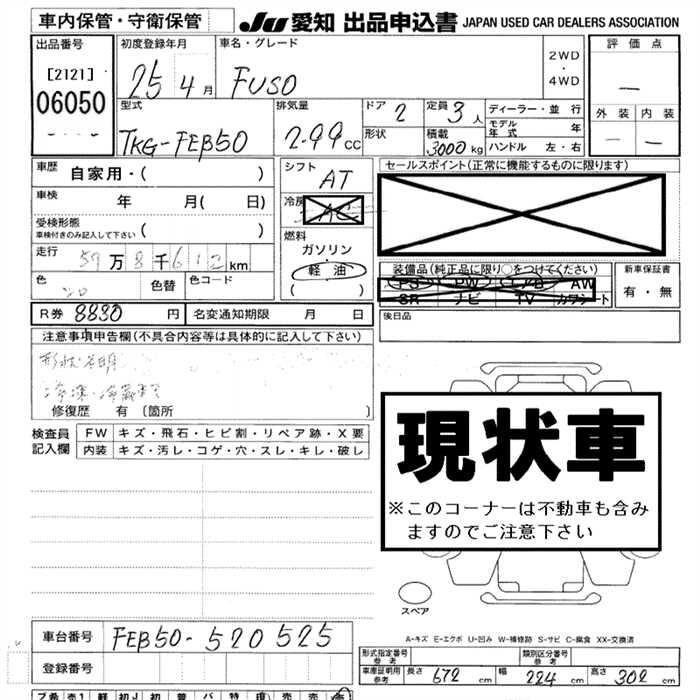 車内保管・守衛保管
JU 愛知 出品申込書 JAPAN USED CAR DEALERS ASSOCIATION
出品番号 初度登録年月 車名・グレード 2WD・4WD 評価点
[2121] 25 4月 FUSO —
06050 型式 排気量 ドア 2 定員 3人 ディーラー・並行 外装 内装
TKG-FEB50 2.99cc 形状 積載 3000kg モデル年式 年 — —
ハンドル 左・右
車歴 自家用・( ) シフト AT セールスポイント(正常に機能するものに限ります)
車検 年 月( 日) 冷房 AC
受検形態 ( ) 燃料
車検付きのみ記入して下さい ガソリン
走行 59万8千612km 軽油 装備品(純正品に限り○をつけてください) 新車保証書
色 シロ 色替 色コード ( ) PS PW エアB AW 有・無
SR ナビ TV カワシート
R券 8830円 名変通知期限 月 日 後日品
注意事項申告欄(不具合内容等は具体的に記入して下さい)
形状不明
修復歴 有 〔箇所 〕
検査員記入欄 FW キズ・飛石・ヒビ割・リペア跡・X要
内装 キズ・汚レ・コゲ・穴・スレ・キレ・破レ
現状車
※このコーナーは不動車も含み
ますのでご注意下さい
スペア
A-キズ E-エクボ U-凹み W-補修跡 S-サビ C-腐食 XX-交換済
車台番号 FEB50-520525 形式指定番号 参考 類別区分番号 参考
登録番号 車庫証明用 参考 長さ 672cm 幅 224cm 高さ 302cm